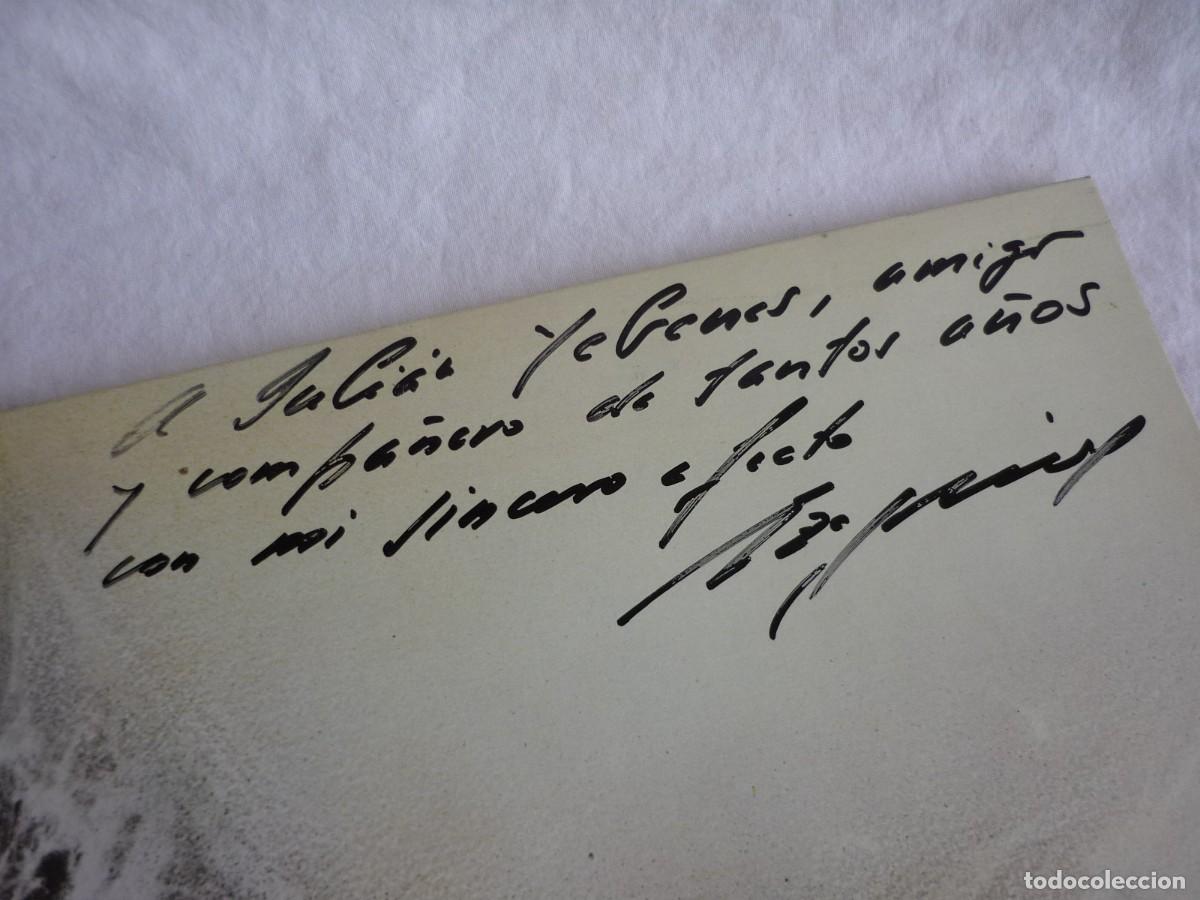 A Julián Yebenes, amigo
y compañero de tantos años
con mi sincero afecto
todocoleccion